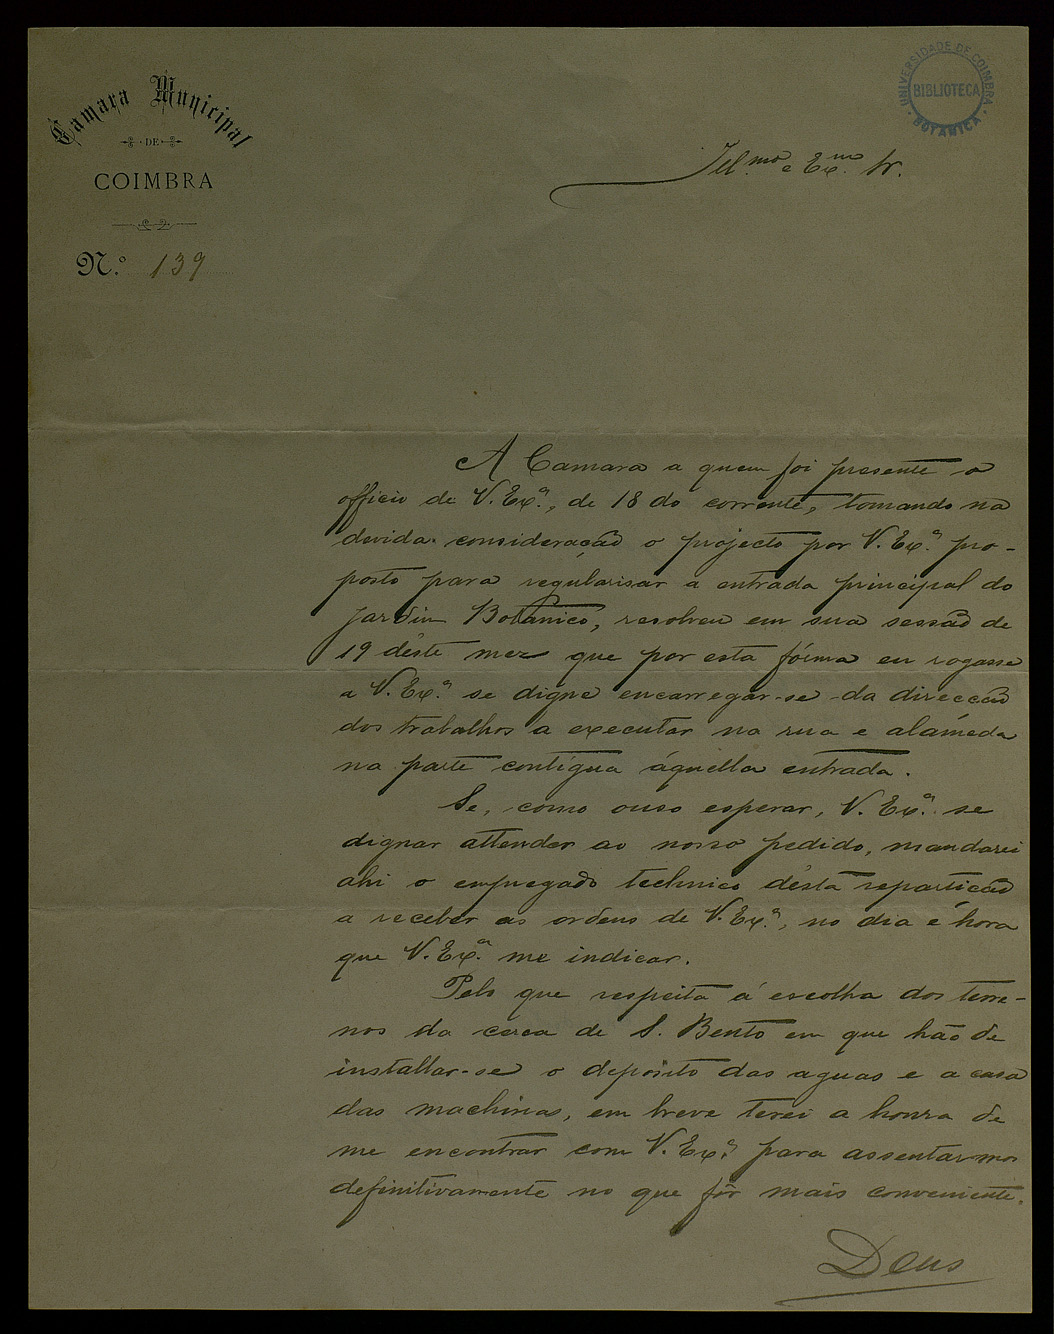 Camara Municipal
DE
COIMBRA
N.º 139
UNIVERSIDADE DE COIMBRA
BIBLIOTECA
BOTANICA
Ill.mo e Ex.mo Sr.
A Camara a quem foi presente o
officio de V. Ex.ª, de 18 do corrente, tomando na
devida consideração o projecto por V. Ex.ª pro-
posto para regularisar a entrada principal do
Jardim Botanico, resolveu em sua sessão de
19 déste mez que por esta fórma eu rogasse
a V. Ex.ª se digne encarregar-se da direcção
dos trabalhos a executar na rua e alámeda
na parte contigua áquella entrada.
Se, como ouso esperar, V. Ex.ª se
dignar attender ao nosso pedido, mandarei
ahi o empregado technico désta repartição
a receber as ordens de V. Ex.ª, no dia e hora
que V. Ex.ª me indicar.
Pelo que respeita á escolha dos terre-
nos da cerca de S. Bento em que hão de
installar-se o depósito das aguas e a casa
das machinas, em breve terei a honra de
me encontrar com V. Ex.ª para assentarmos
definitivamente no que fôr mais conveniente.
Deus